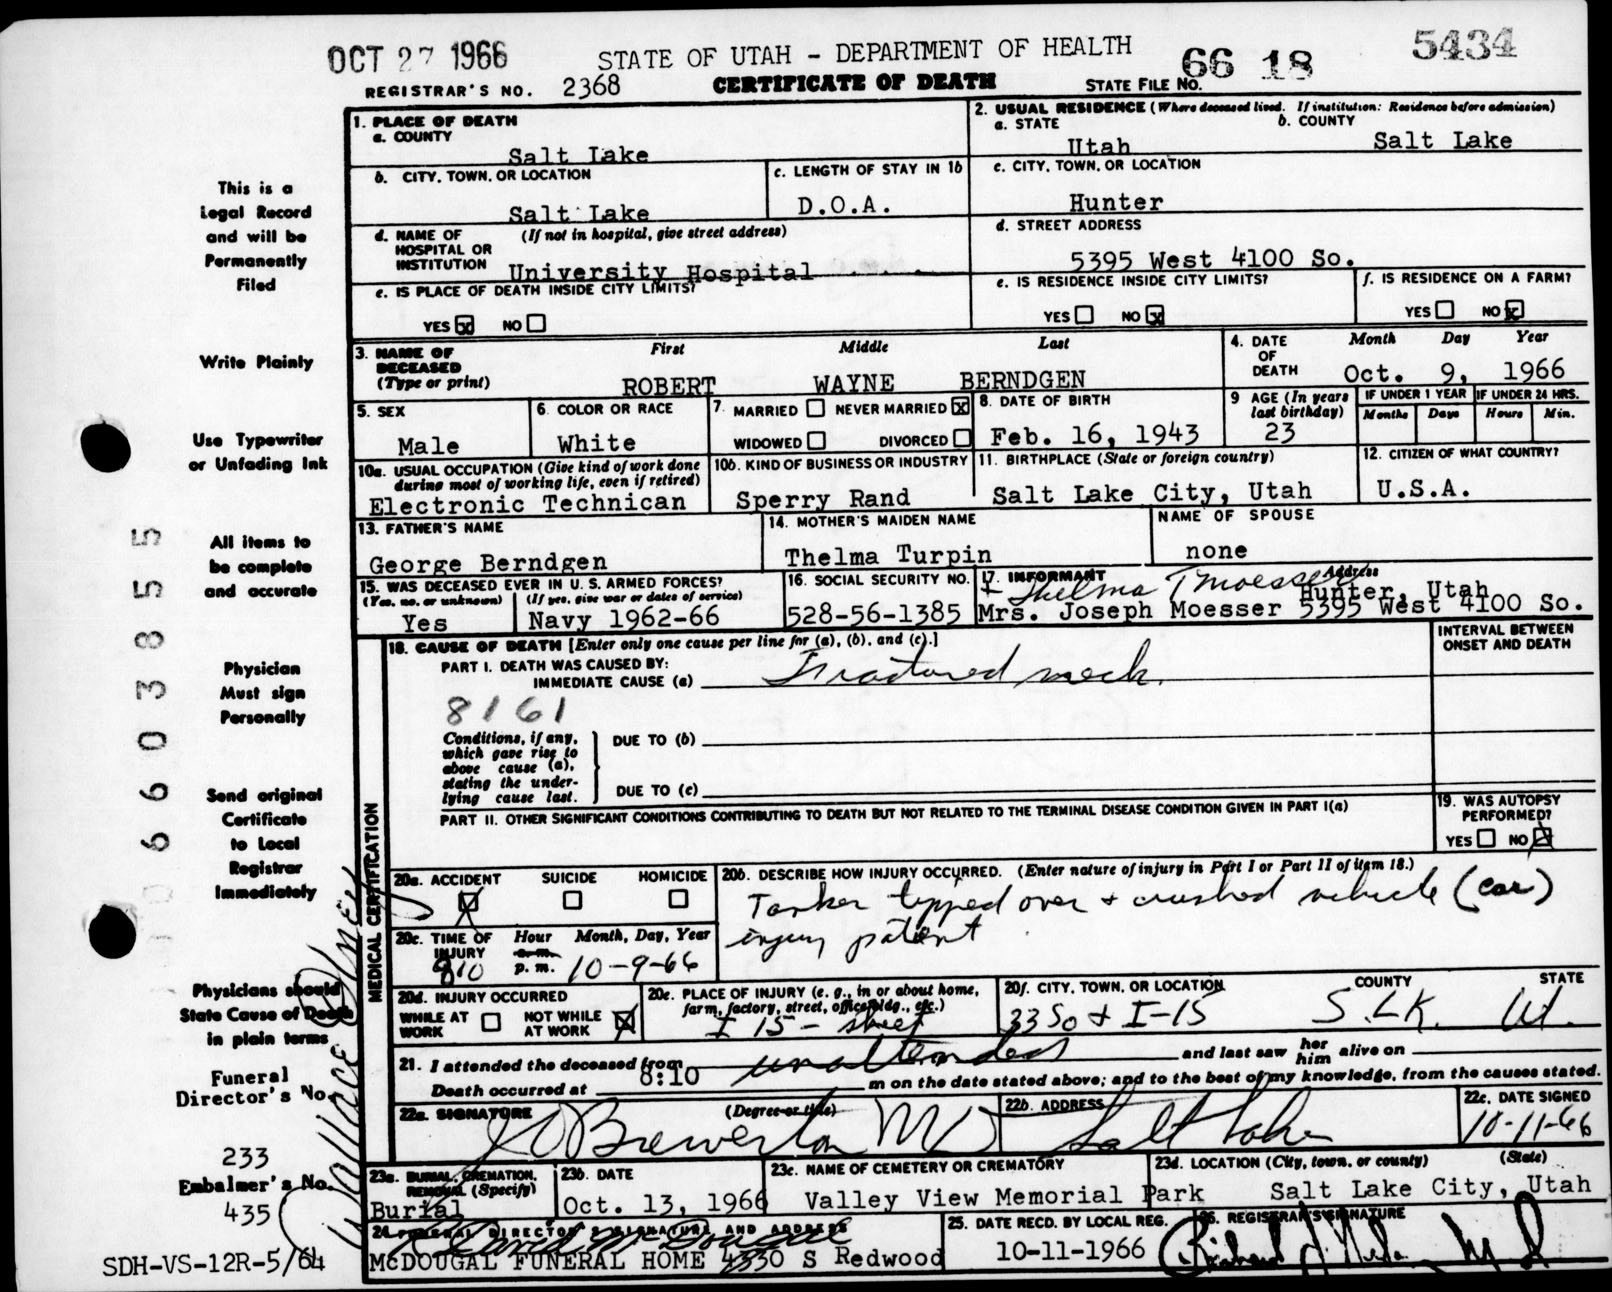 OCT 27 1966 STATE OF UTAH - DEPARTMENT OF HEALTH 66 18 5434
REGISTRAR'S NO. 2368 CERTIFICATE OF DEATH STATE FILE NO.
1. PLACE OF DEATH
a. COUNTY
Salt Lake
2. USUAL RESIDENCE (Where deceased lived. If institution: Residence before admission)
a. STATE b. COUNTY
Utah Salt Lake
b. CITY, TOWN, OR LOCATION
Salt Lake
c. LENGTH OF STAY IN 1b
D.O.A.
c. CITY, TOWN, OR LOCATION
Hunter
d. NAME OF HOSPITAL OR INSTITUTION (If not in hospital, give street address)
University Hospital
d. STREET ADDRESS
5395 West 4100 So.
e. IS PLACE OF DEATH INSIDE CITY LIMITS?
YES x NO
e. IS RESIDENCE INSIDE CITY LIMITS?
YES NO x
f. IS RESIDENCE ON A FARM?
YES NO x
3. NAME OF DECEASED (Type or print)
First Middle Last
ROBERT WAYNE BERNDGEN
4. DATE OF DEATH
Month Day Year
Oct. 9, 1966
5. SEX
Male
6. COLOR OR RACE
White
7. MARRIED NEVER MARRIED x
WIDOWED DIVORCED
8. DATE OF BIRTH
Feb. 16, 1943
9 AGE (In years last birthday)
23
IF UNDER 1 YEAR
Months Days
IF UNDER 24 HRS.
Hours Min.
10a. USUAL OCCUPATION (Give kind of work done during most of working life, even if retired)
Electronic Technican
10b. KIND OF BUSINESS OR INDUSTRY
Sperry Rand
11. BIRTHPLACE (State or foreign country)
Salt Lake City, Utah
12. CITIZEN OF WHAT COUNTRY?
U.S.A.
13. FATHER'S NAME
George Berndgen
14. MOTHER'S MAIDEN NAME
Thelma Turpin
NAME OF SPOUSE
none
15. WAS DECEASED EVER IN U. S. ARMED FORCES?
(Yes, no, or unknown) (If yes, give war or dates of service)
Yes Navy 1962-66
16. SOCIAL SECURITY NO.
528-56-1385
17. INFORMANT Address
Thelma T Moesser Hunter, Utah
Mrs. Joseph Moesser 5395 West 4100 So.
18. CAUSE OF DEATH [Enter only one cause per line for (a), (b), and (c).]
PART I. DEATH WAS CAUSED BY:
IMMEDIATE CAUSE (a) Fractured neck.
8161
Conditions, if any, which gave rise to above cause (a), stating the underlying cause last.
DUE TO (b)
DUE TO (c)
INTERVAL BETWEEN ONSET AND DEATH
PART II. OTHER SIGNIFICANT CONDITIONS CONTRIBUTING TO DEATH BUT NOT RELATED TO THE TERMINAL DISEASE CONDITION GIVEN IN PART I(a)
19. WAS AUTOPSY PERFORMED?
YES NO x
MEDICAL CERTIFICATION
20a. ACCIDENT SUICIDE HOMICIDE
X
20b. DESCRIBE HOW INJURY OCCURRED. (Enter nature of injury in Part I or Part II of item 18.)
Tanker tipped over + crushed vehicle (car)
injury patient
20c. TIME OF INJURY
Hour Month, Day, Year
a.m.
810 p.m. 10-9-66
20d. INJURY OCCURRED
WHILE AT WORK NOT WHILE AT WORK x
20e. PLACE OF INJURY (e. g., in or about home, farm, factory, street, office bldg., etc.)
I 15 - street
20f. CITY, TOWN, OR LOCATION COUNTY STATE
33 So + I-15 S.LK. Ut.
21. I attended the deceased from unattended and last saw her him alive on
Death occurred at 8:10 m on the date stated above; and to the best of my knowledge, from the causes stated.
22a. SIGNATURE (Degree or title)
Brewerton MD
22b. ADDRESS
Salt Lake
22c. DATE SIGNED
10-11-66
23a. BURIAL, CREMATION, REMOVAL (Specify)
Burial
23b. DATE
Oct. 13, 1966
23c. NAME OF CEMETERY OR CREMATORY
Valley View Memorial Park
23d. LOCATION (City, town, or county) (State)
Salt Lake City, Utah
24. FUNERAL DIRECTOR'S SIGNATURE AND ADDRESS
McDOUGAL FUNERAL HOME 4330 S Redwood
25. DATE RECD. BY LOCAL REG.
10-11-1966
26. REGISTRAR'S SIGNATURE
This is a
Legal Record
and will be
Permanently
Filed
Write Plainly
Use Typewriter
or Unfading Ink
All items to
be complete
and accurate
Physician
Must sign
Personally
Send original
Certificate
to Local
Registrar
Immediately
Physicians should
State Cause of Death
in plain terms
Funeral
Director's No.
233
Embalmer's No.
435
SDH-VS-12R-5/64
66038555